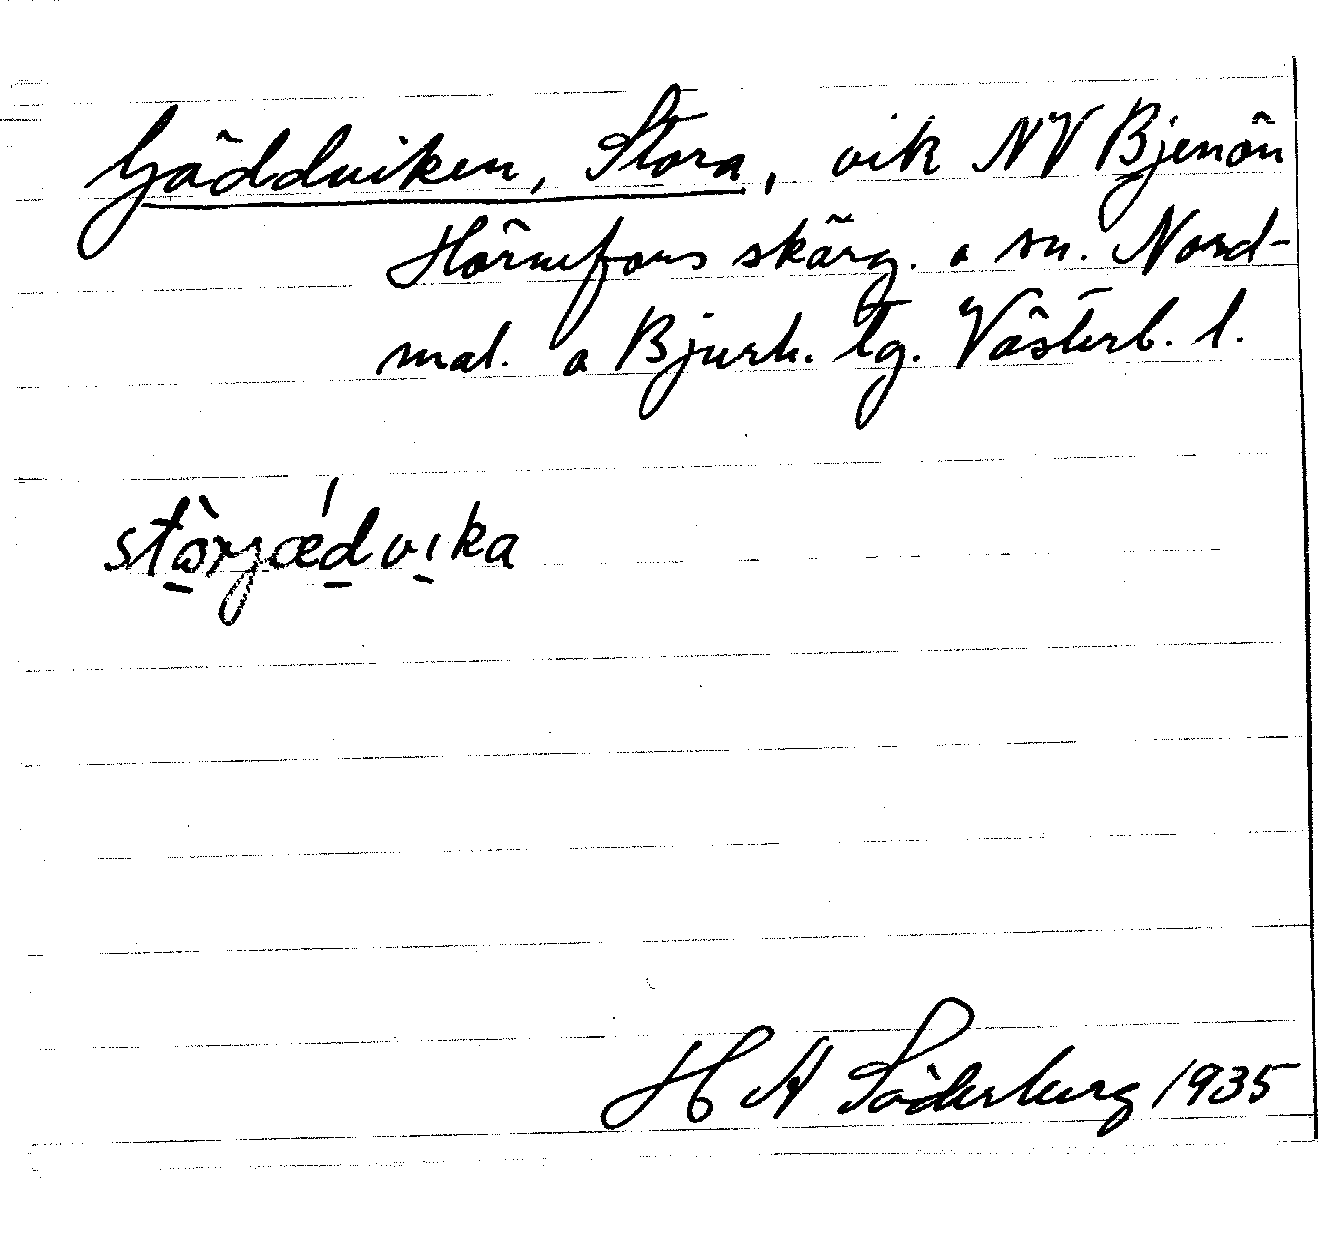 Gäddviken, Stora, vik NV Bjenön
Hörnefors skärg. o sn. Nord-
mal. o Bjurh. tg. Västerb. l.
stòrjǽdvika
H A Söderberg 1935